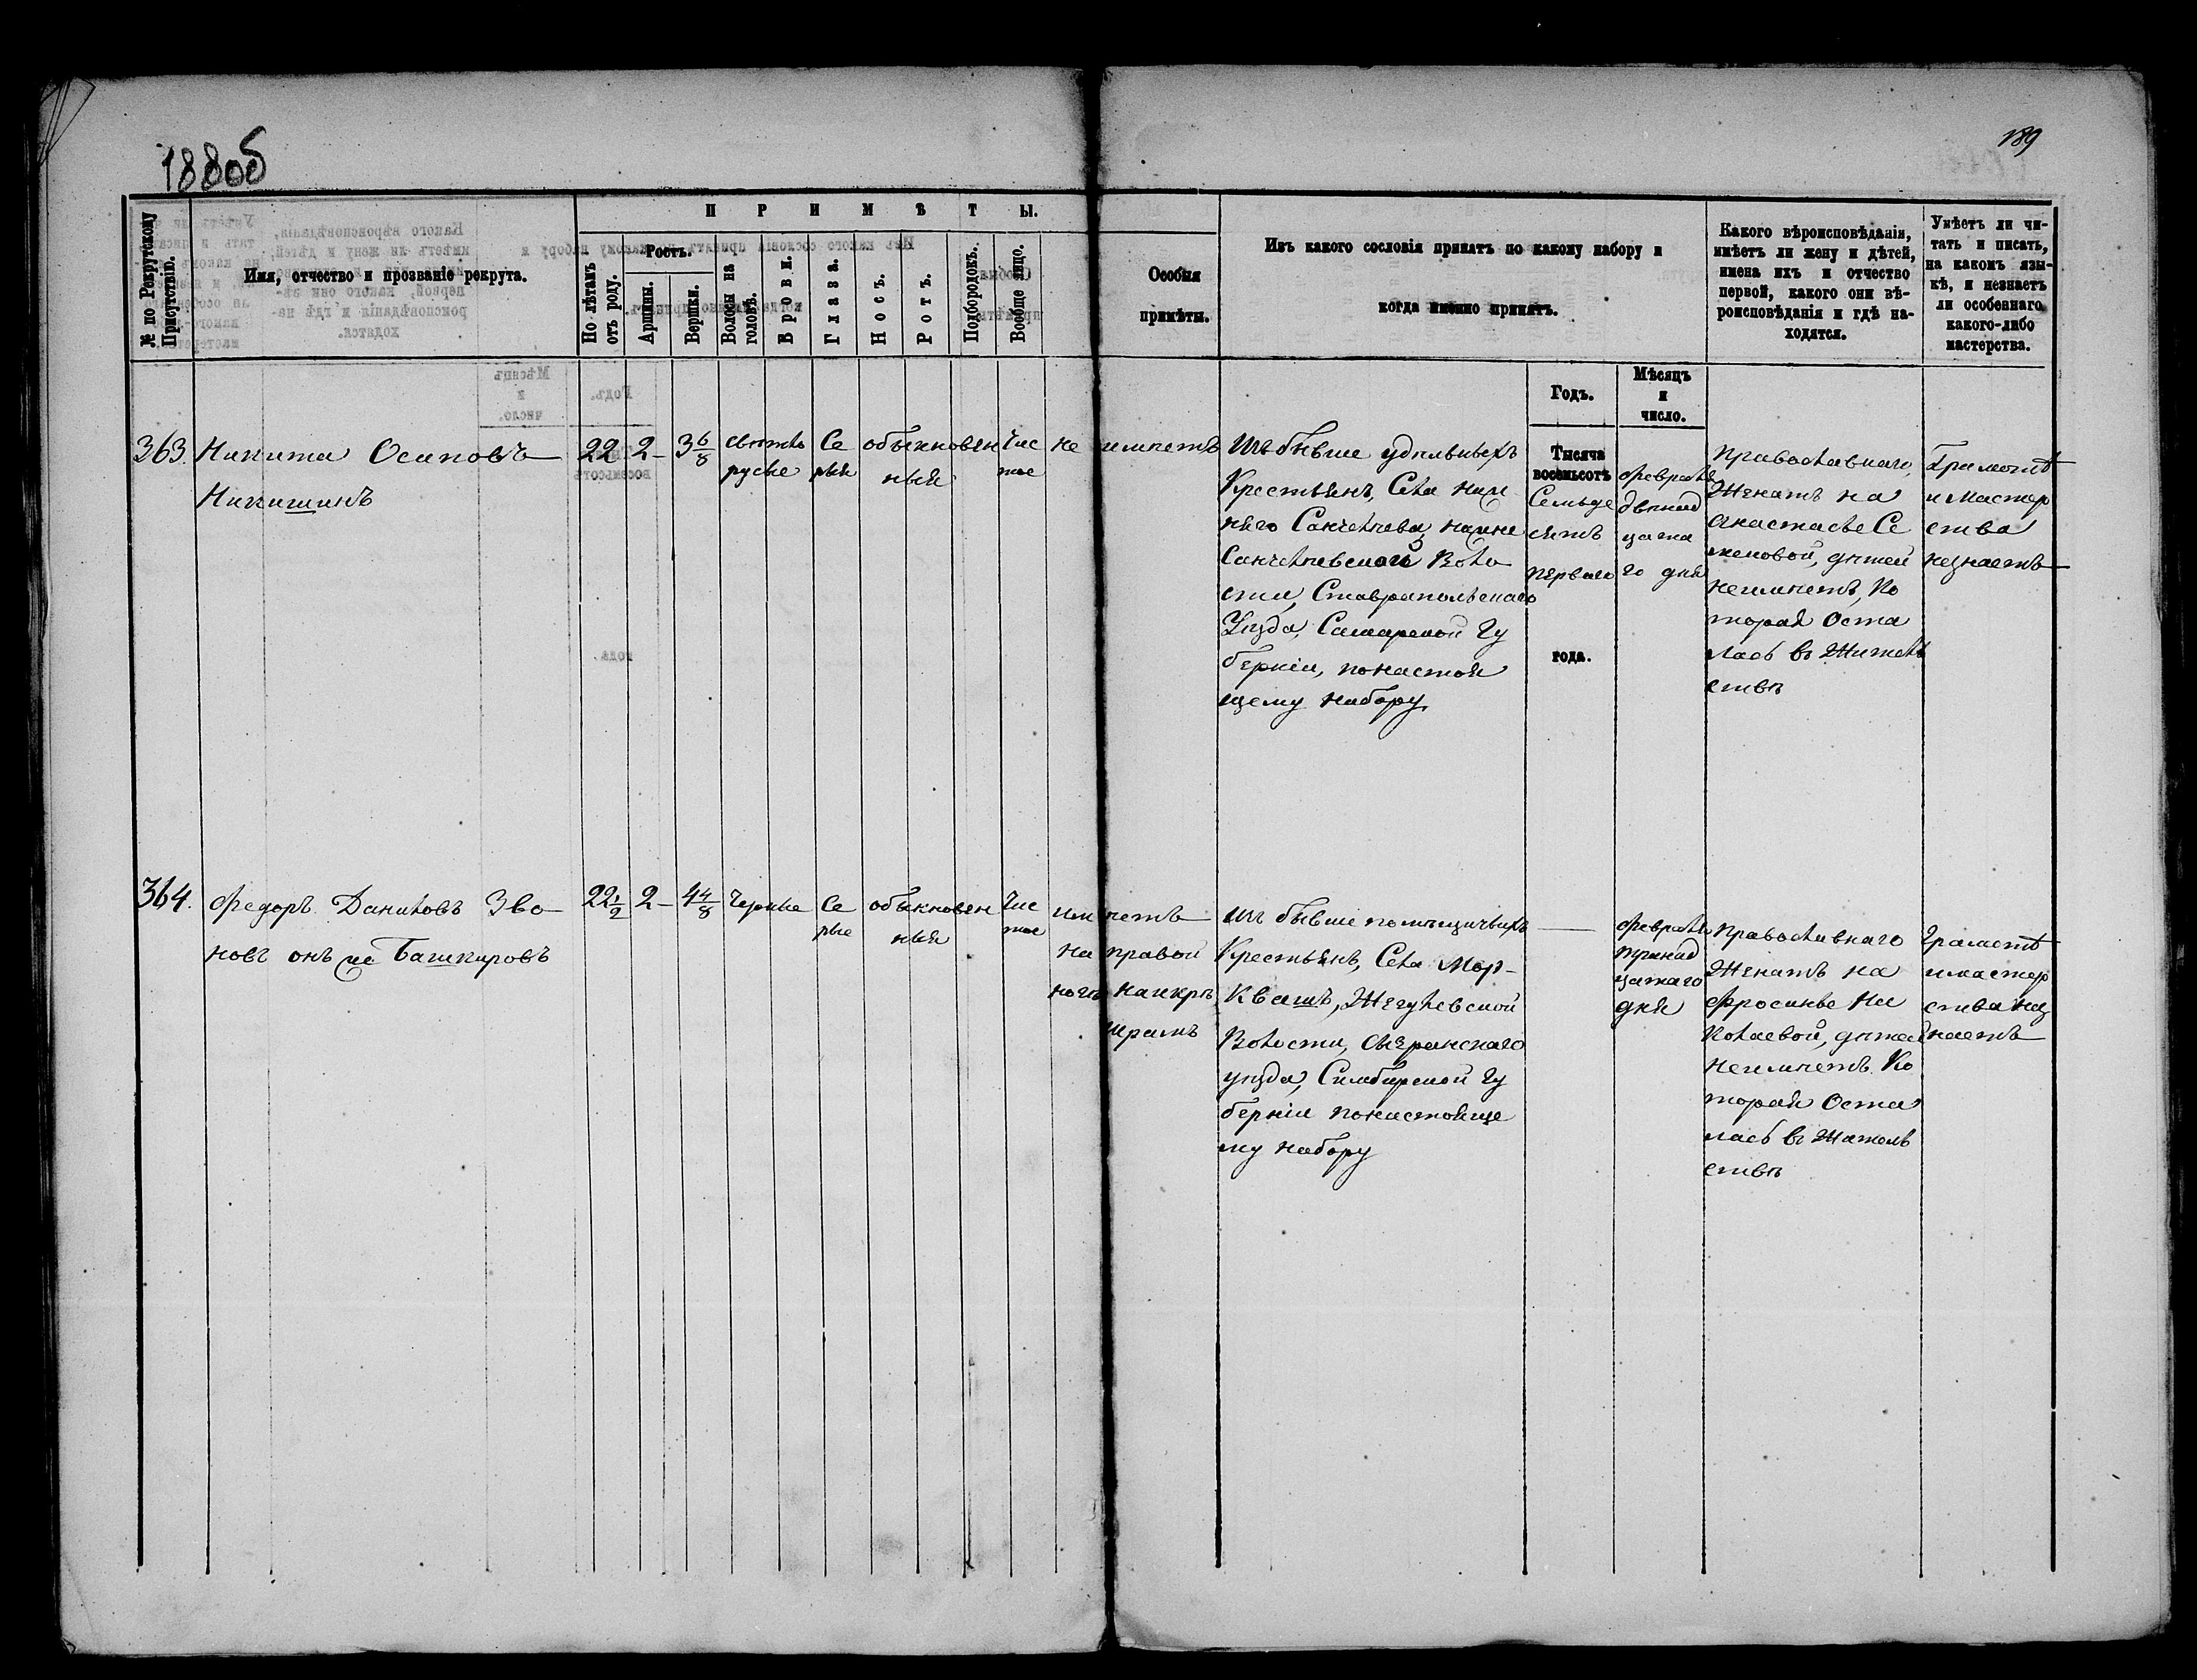 188об
189
№ по Рекрутскому Присутствію.
Имя, отчество и прозваніе рекрута.
ПРИМѢТЫ.
По лѣтамъ отъ роду.
Ростъ.
Аршины.
Вершки.
Волосы на головѣ.
Брови.
Глаза.
Носъ.
Ротъ.
Подбородокъ.
Вообще лицо.
Особыя
примѣты.
Изъ какого сословія принятъ по какому набору и
когда именно принятъ.
Какого вѣроисповѣданія,
имѣетъ ли жену и дѣтей,
имена ихъ и отчество
первой, какого они вѣ-
роисповѣданія и гдѣ на-
ходятся.
Умѣетъ ли чи-
тать и писать,
на какомъ язы-
кѣ, и незнаетъ
ли особеннаго
какого-либо
мастерства.
Годъ.
Мѣсяцъ
и
число.
363.
Никита Осиповъ
Никишинъ
22
2
3 6/8
свѣтло
русые
Се
рыя
обыкновен
ныя
Чис
тое
не имѣетъ
Изъ бывше удѣльныхъ
Крестьянъ, Села Ниж
няго Санчелѣева, Нижне
Санчелѣевской Воло
сти, Ставропольскаго
Уѣзда, Самарской Гу
берніи, понастоя
щему набору.
Тысяча
восемьсотъ
Семьде
сятъ
перваго
года.
февраля
двѣнад
цата
го дня
Православнаго,
Женатъ на
Анастасье Се
меновой, дѣтей
неимѣетъ, Ко
торая Оста
лась въ Житель
ствѣ
Грамотѣ
и мастер
ства
незнаетъ
364.
Федоръ Даниловъ Зво
новъ онъ же Башкировъ
22 1/2
2
4 4/8
Черные
Се
рые
обыкновен
ныя
Чис
тое
имѣетъ
на правой
ногѣ наикрѣ
шрамъ
Изъ бывше помѣщичьихъ
Крестьянъ, Села Мор-
Квашъ, Жегулевской
Волости, Сызранскаго
уѣзда, Симбирской Гу
берніи понастояще
му набору
февраля
тринад
цатаго
дня
Православнаго
Женатъ на
Ефросинье Ни
Колаевой, дѣтей
неимѣетъ. Ко
торая Оста
лась въ Житель
ствѣ
Грамотѣ
и мастер
ства нез
наетъ